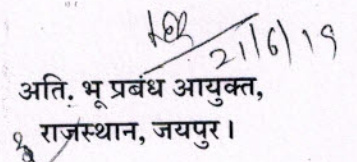 21/6/19
अति. भू प्रबंध आयुक्त,
राजस्थान, जयपुर।